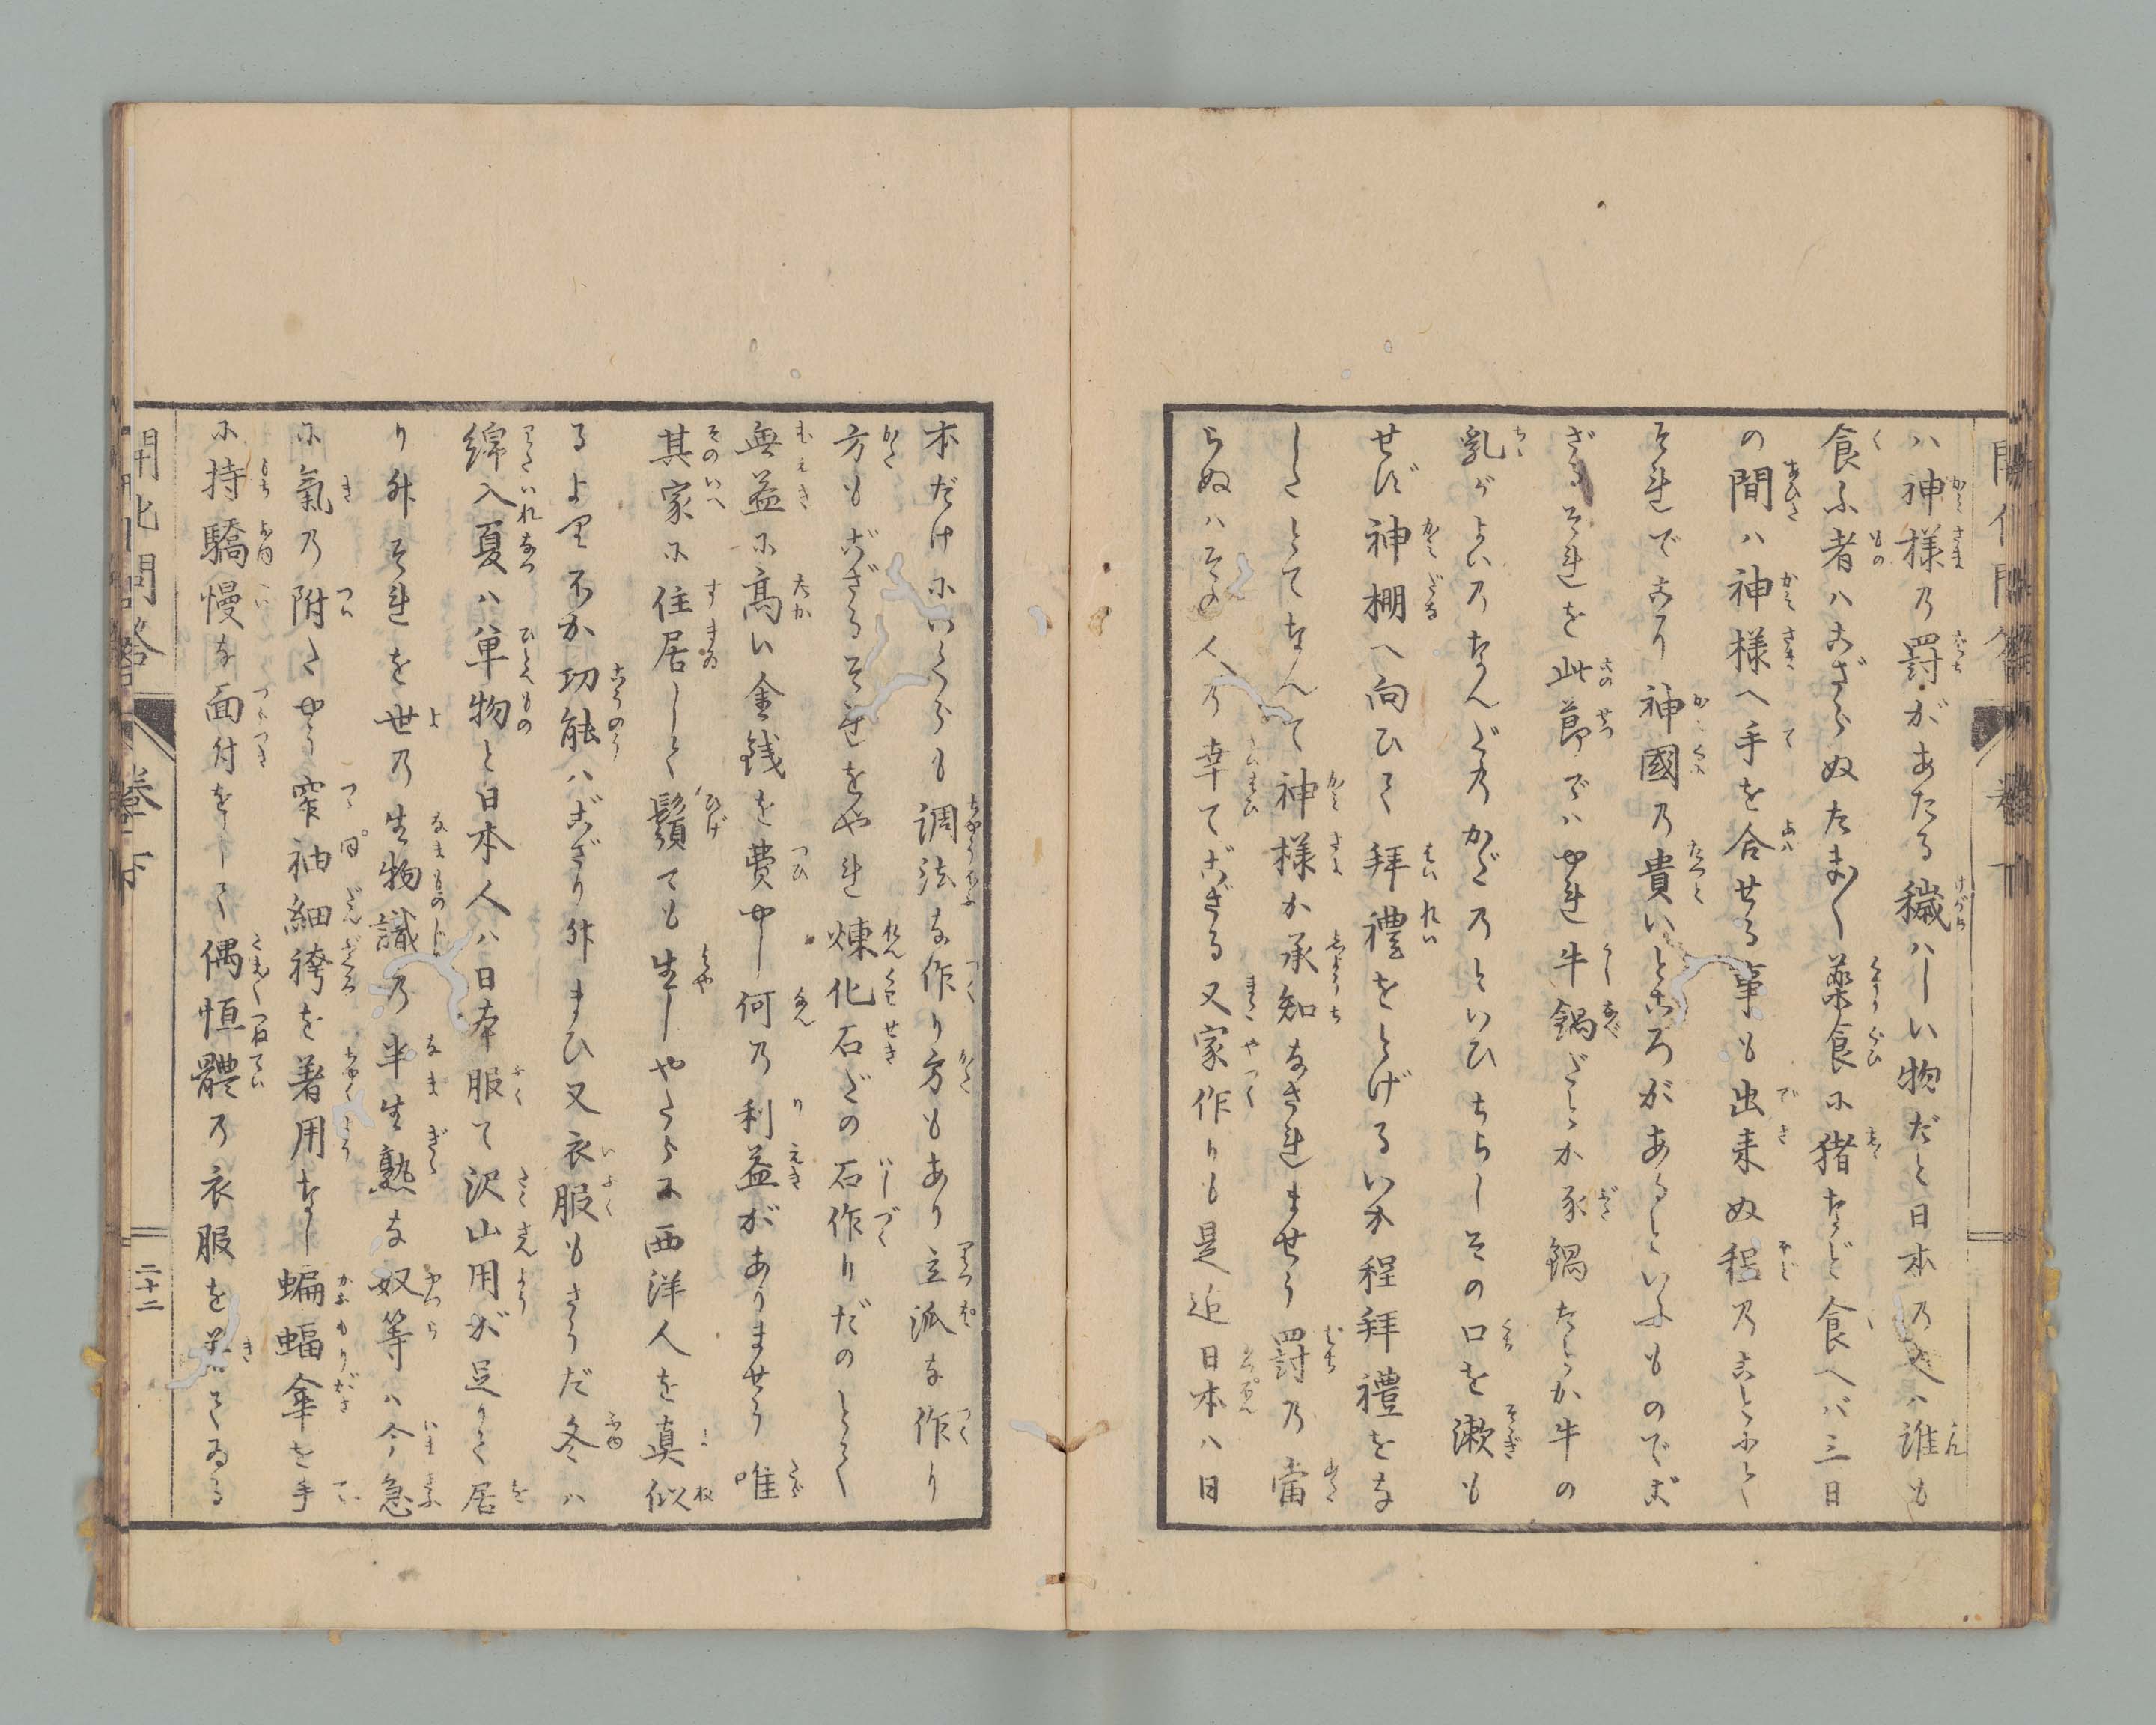 ハ神様乃罰があたる穢ハしい物だと日本乃人ハ誰も
食ふ者ハござらぬたま〳〵薬食に猪など食へバ三日
の間ハ神様へ手を合せる事も出来ぬ程乃ことにて
それでこり神國乃貴いところがあるといふものでご
ざるそれを此節でハやれ牛鍋だとか豕鍋だとか牛の
乳がよい乃なんど乃かど乃といひちらしその口を漱も
せず神棚へ向ひて拝禮をとげるいか程拝禮をな
したとてなんで神様か承知なされませう罰乃當
らぬハその人乃幸てござる又家作りも是迄日本ハ日
本だけにいくらも調法な作り方もあり立派な作り
方もござるそれをやれ煉化石だの石作りだのとて
無益に高い金銭を費やし何乃利益がありませう唯
其家に住居して鬚ても生しやたらに西洋人を真似
るより外か功能ハござり升まひ又衣服もさうだ冬ハ
綿入夏ハ単物と日本人ハ日本服て沢山用が足りて居
り升それを世乃生物識乃半生熟な奴等ハ今急
に氣乃附たやう窄袖細袴を着用なし蝙蝠傘を手
に持驕慢な面付をして偶恒體乃衣服を着てゐる
開化問答 巻下 二十二